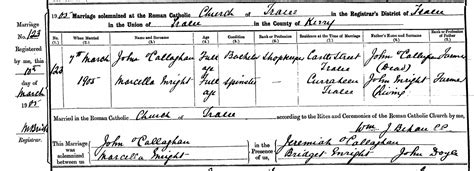 1905 Marriage solemnized at the Roman Catholic Church of Tralee in the Registrar's District of Tralee
in the Union of Tralee in the County of Kerry
Marriage No. 123
Registered by me, this 10th day of March 1905.
Registrar.
When Married
Name and Surname
Age
Condition
Rank or Profession
Residence at the Time of Marriage
Father's Name and Surname
Rank or Profession of Father
123
7th March 1905
John O'Callaghan Full age Bachelor Shopkeeper Castle Street Tralee John O'Callaghan (Dead) Farmer
Marcella Enright Full age Spinster Curraheen Tralee John Enright (Living) Farmer
Married in the Roman Catholic Church of Tralee according to the Rites and Ceremonies of the Roman Catholic Church by me,
Wm J. Behan CC
This Marriage was solemnized between us
John O'Callaghan
Marcella Enright
in the Presence of us
Jeremiah O'Callaghan
Bridget Enright John Doyle